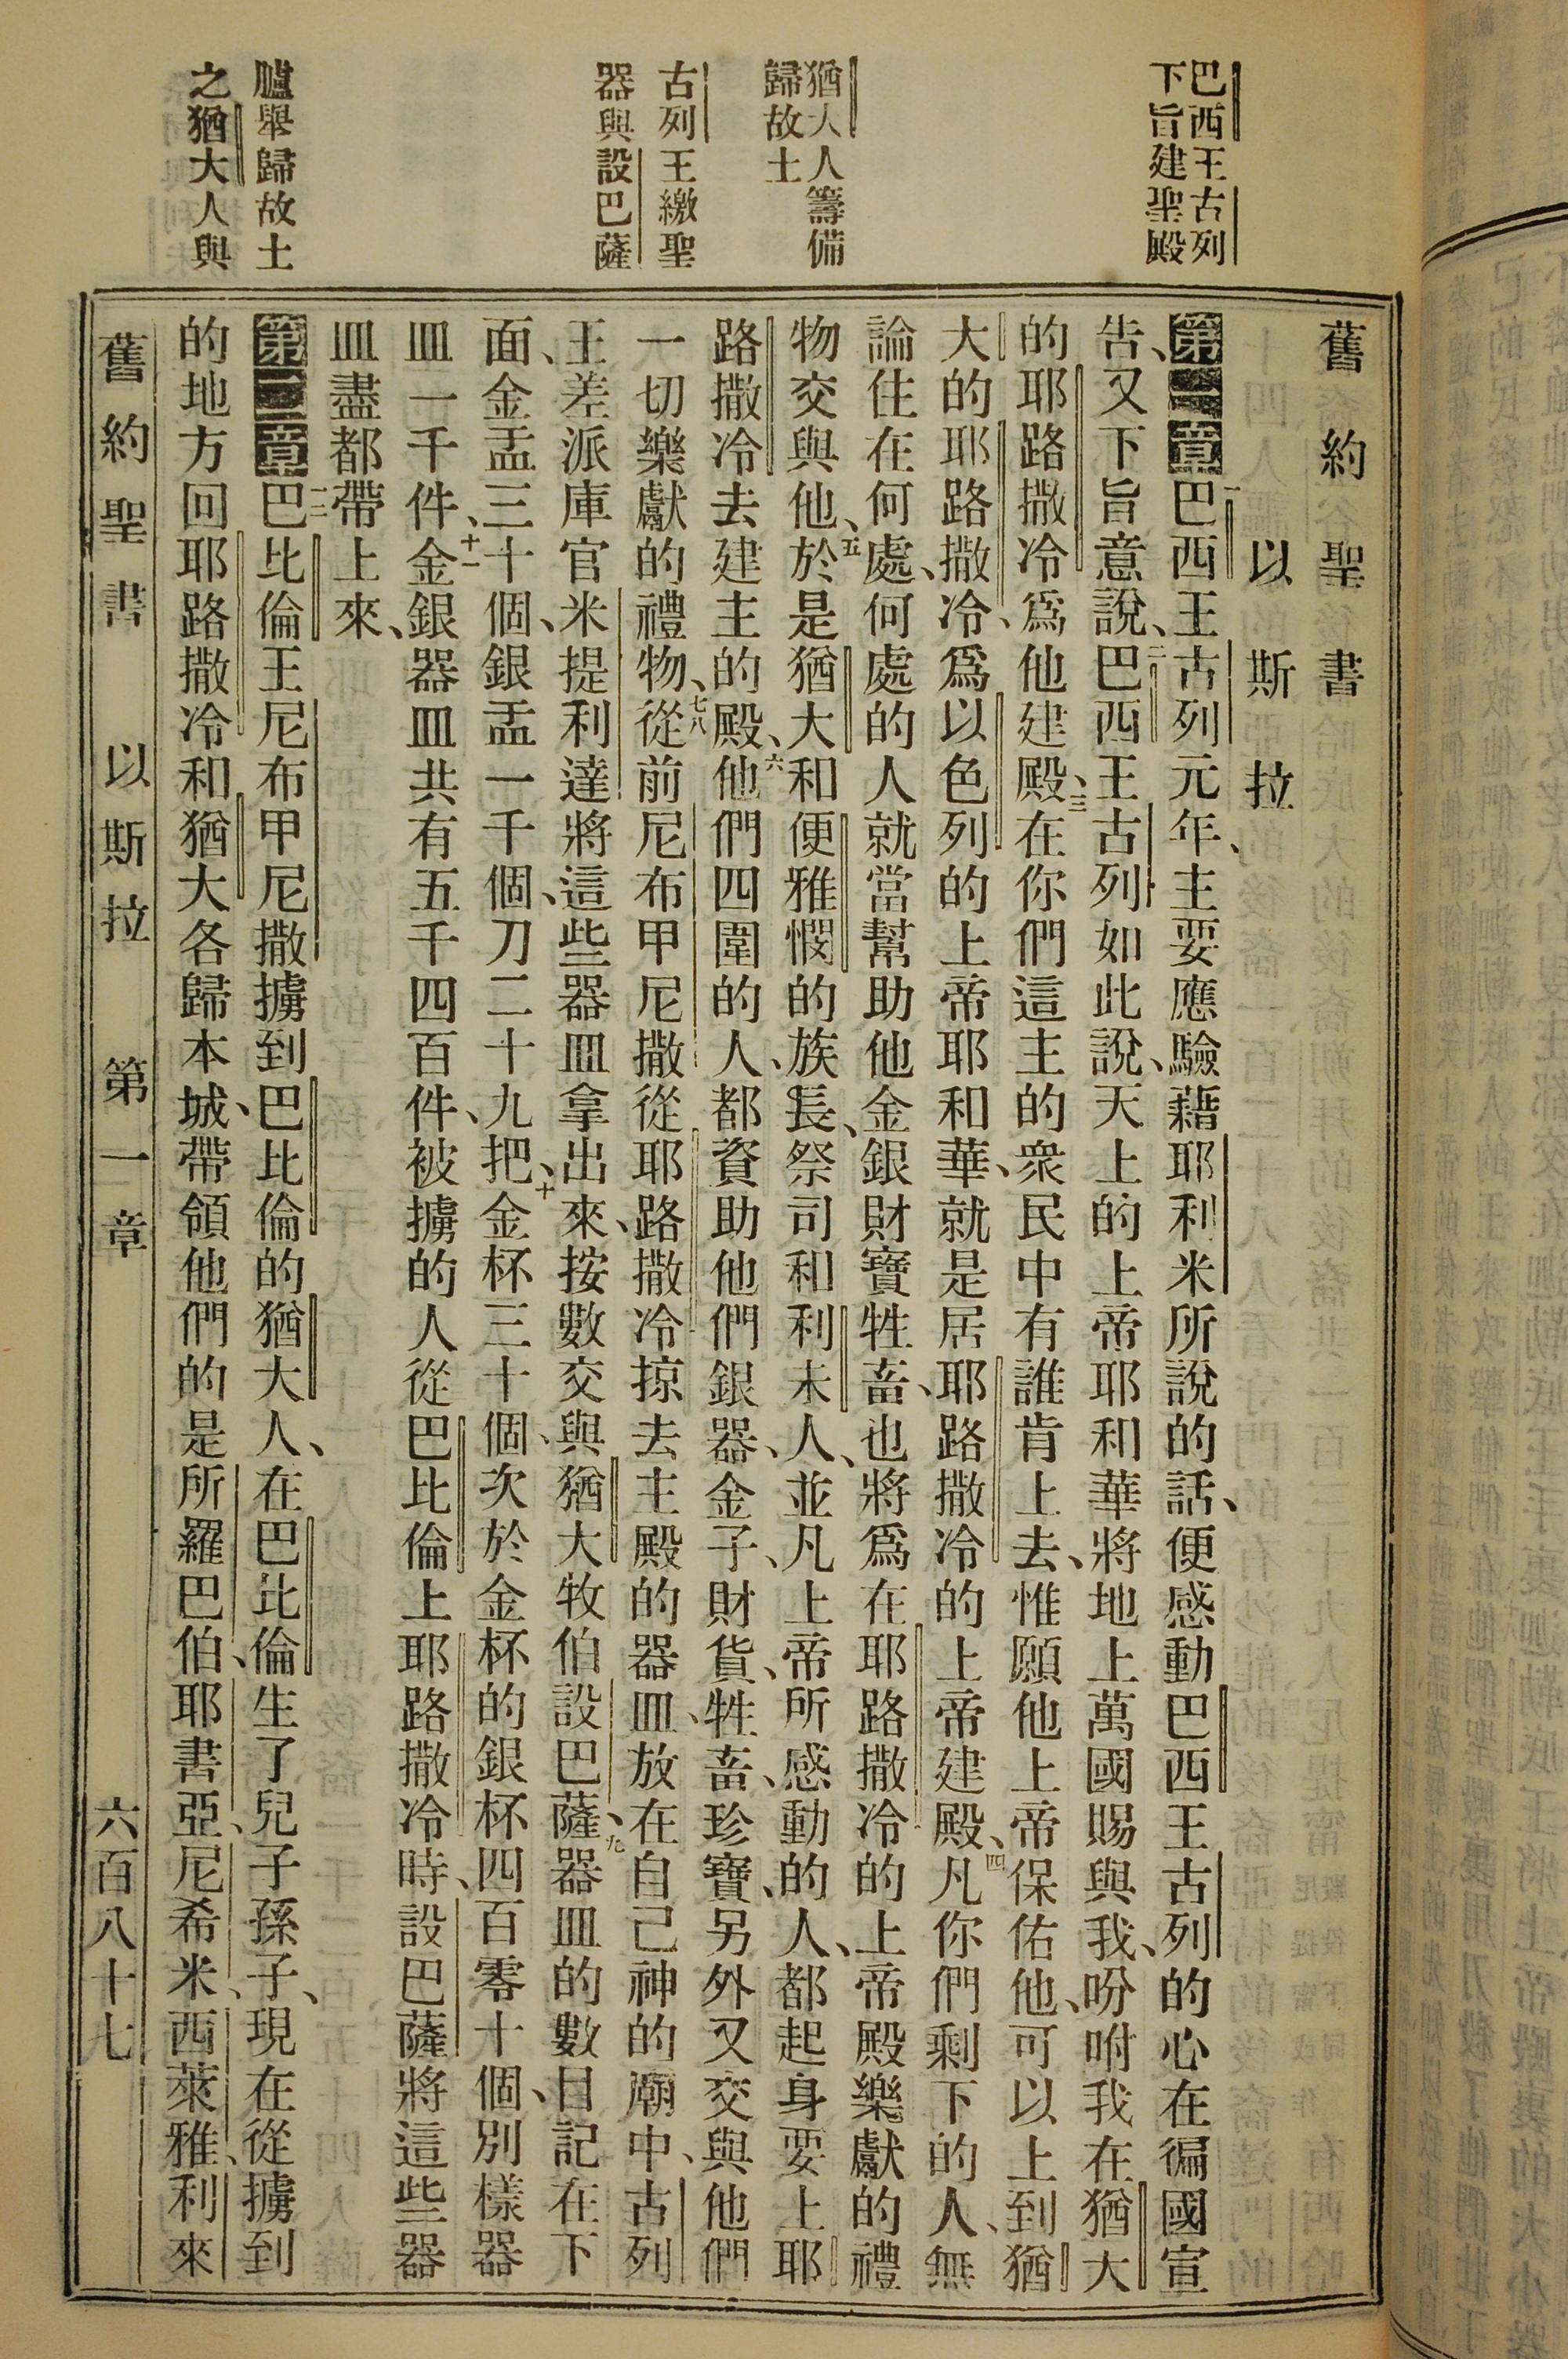 巴西王古列
下旨建聖殿
猶大人籌備
歸故土
古列王繳聖
器與設巴薩
臚舉歸故土
之猶大人與
舊約聖書
以斯拉
第一章一巴西王古列元年、主要應驗藉耶利米所說的話、便感動巴西王古列的心在徧國宣
告、又下旨意說、二巴西王古列如此說、天上的上帝耶和華將地上萬國賜與我、吩咐我在猶大
的耶路撒冷爲他建殿、三在你們這主的衆民中有誰肯上去、惟願他上帝保佑他、可以上到猶
大的耶路撒冷、爲以色列的上帝耶和華、就是居耶路撒冷的上帝建殿、四凡你們剩下的人、無
論住在何處、何處的人就當幫助他金銀財寶牲畜、也將爲在耶路撒冷的上帝殿樂獻的禮
物交與他、五於是猶大和便雅憫的族長、祭司和利未人、並凡上帝所感動的人、都起身要上耶
路撒冷去建主的殿、六他們四圍的人、都資助他們銀器、金子、財貨、牲畜、珍寶、另外又交與他們
一切樂獻的禮物、七八從前尼布甲尼撒從耶路撒冷掠去主殿的器皿、放在自己神的廟中、古列
王差派庫官米提利達將這些器皿拿出來、按數交與猶大牧伯設巴薩、九器皿的數目記在下
面、金盂三十個、銀盂一千個、刀二十九把、十金杯三十個、次於金杯的銀杯四百零十個、別樣器
皿一千件、十一金銀器皿共有五千四百件、被擄的人從巴比倫上耶路撒冷時、設巴薩將這些器
皿盡都帶上來、
第二章一二巴比倫王尼布甲尼撒擄到巴比倫的猶大人、在巴比倫生了兒子孫子、現在從擄到
的地方回耶路撒冷和猶大各歸本城、帶領他們的是所羅巴伯、耶書亞、尼希米、西萊雅、利來
舊約聖書　以斯拉　第一章　六百八十七